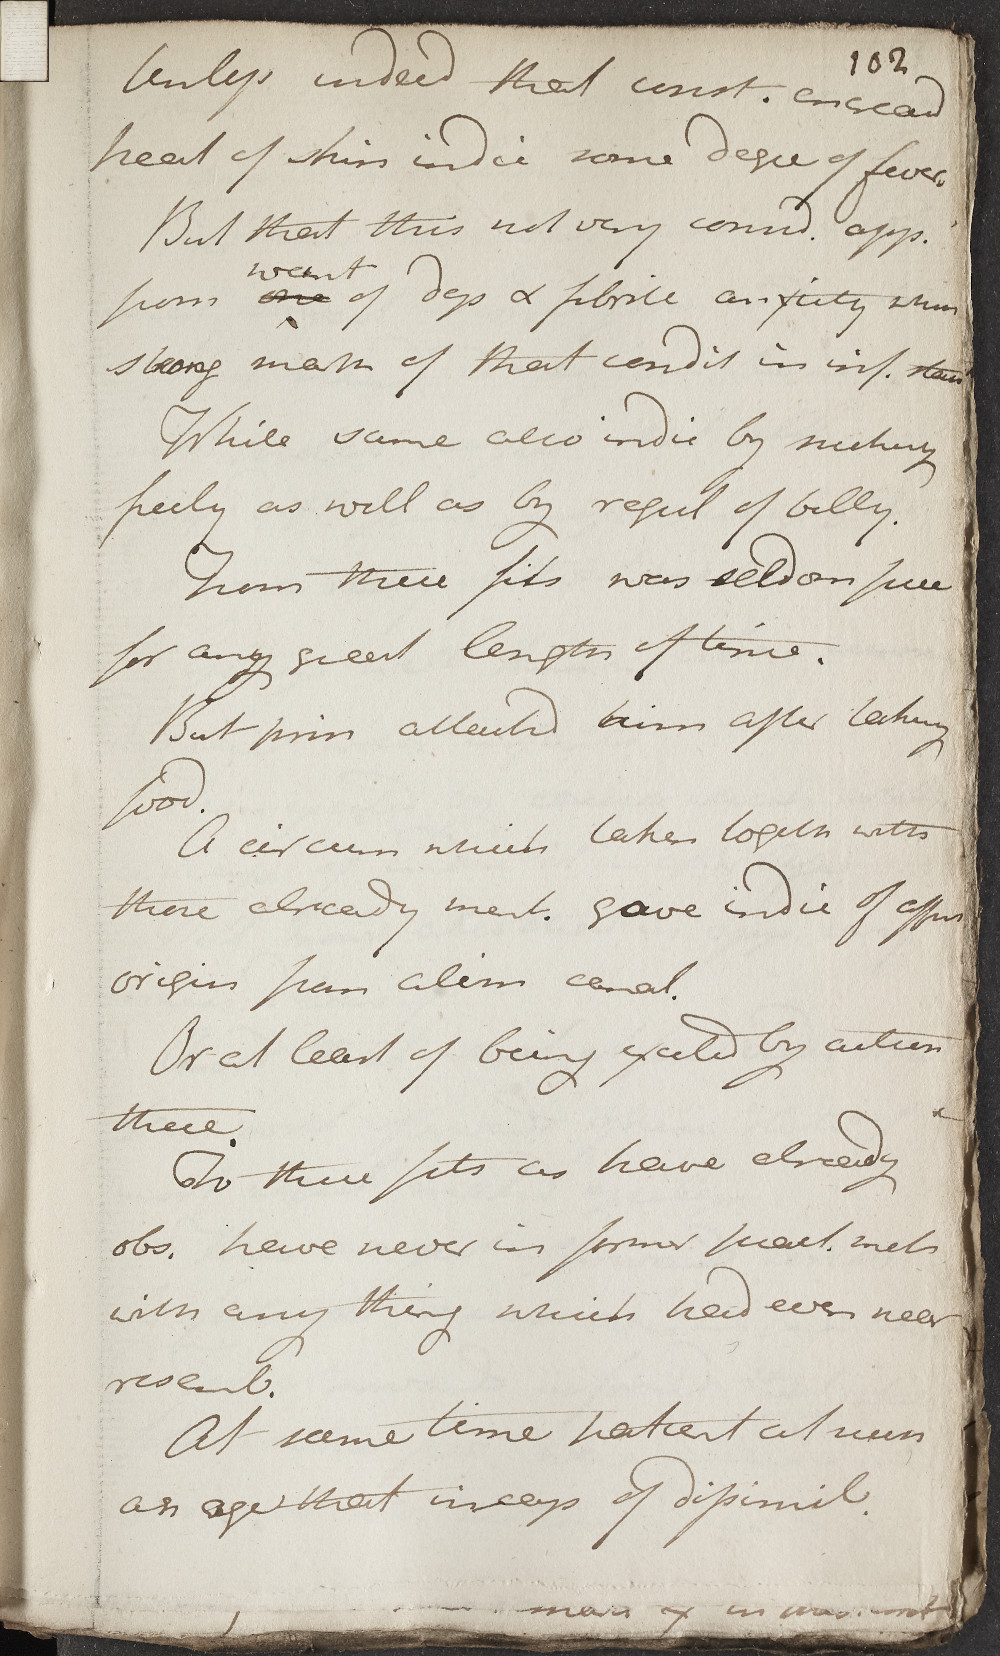 102
Unless indeed that const. encread
heat of skin indic some degee of fever.
But that this not very consid. app.
want
from one of deps & febrile anxiety when
strong mark of that condit in inf. state
While same also indic by
feely as well as by regul of belly.
From these fits was seldom free
for any great length of time.
But prin attacked him after taking
food.
A circum which taken togeth with
those already ment. gave indic of affn
origin from alim canal.
Or at least of being excited by action
there.
To these fits as have already
obs. have never in former pract. meth
with any thing which had even near
resemb.
At same time patient at such
an age that incaps of dissimil.